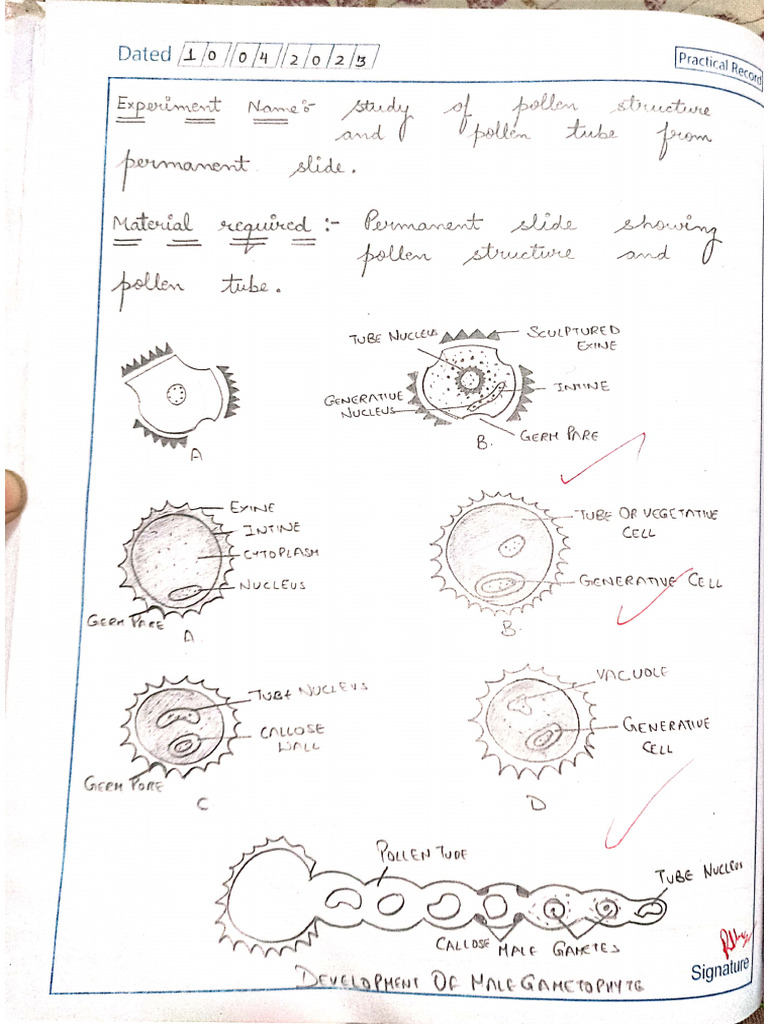 Dated 10 04 2023
Practical Record
Experiment Name:- study of pollen structure
and pollen tube from
permanent slide.
Material required :- Permanent slide showing
pollen structure and
pollen tube.
TUBE NUCLEUS
SCULPTURED
EXINE
GENERATIVE
NUCLEUS
INTINE
GERM PARE
A
B.
EXINE
INTINE
CYTOPLASM
NUCLEUS
GERM PARE
A.
TUBE OR VEGETATIVE
CELL
GENERATIVE CELL
B.
TUBE NUCLEUS
CALLOSE
WALL
GERM PORE
C
VACUOLE
GENERATIVE
CELL
D
POLLEN TUDE
TUBE NUCLEUS
CALLOSE MALE GAMETES
DEVELOPMENT OF MALE GAMETOPHYTE
Signature